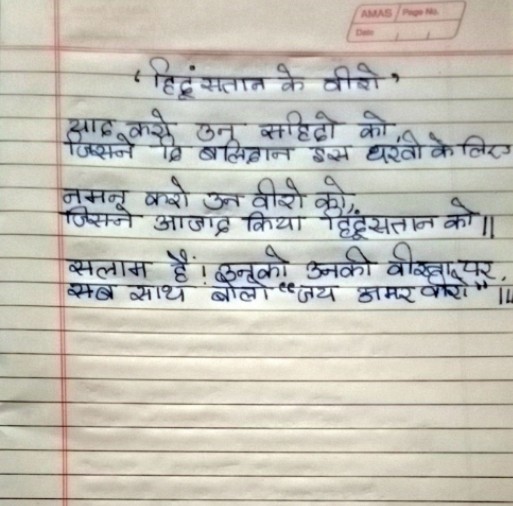 AMAS Page No.
Date
‘हिंदूंसतान के वीरो’
याद करो उन सहिदो को,
जिसने दि बलिदान इस धरती के लिए
नमन करो उन वीरो को,
जिसने आजाद किया हिंदूंसतान को ||
सलाम हैं ! उनको उनकी वीरता पर,
सब साथ बोलो “जय अमर वीरो” ||